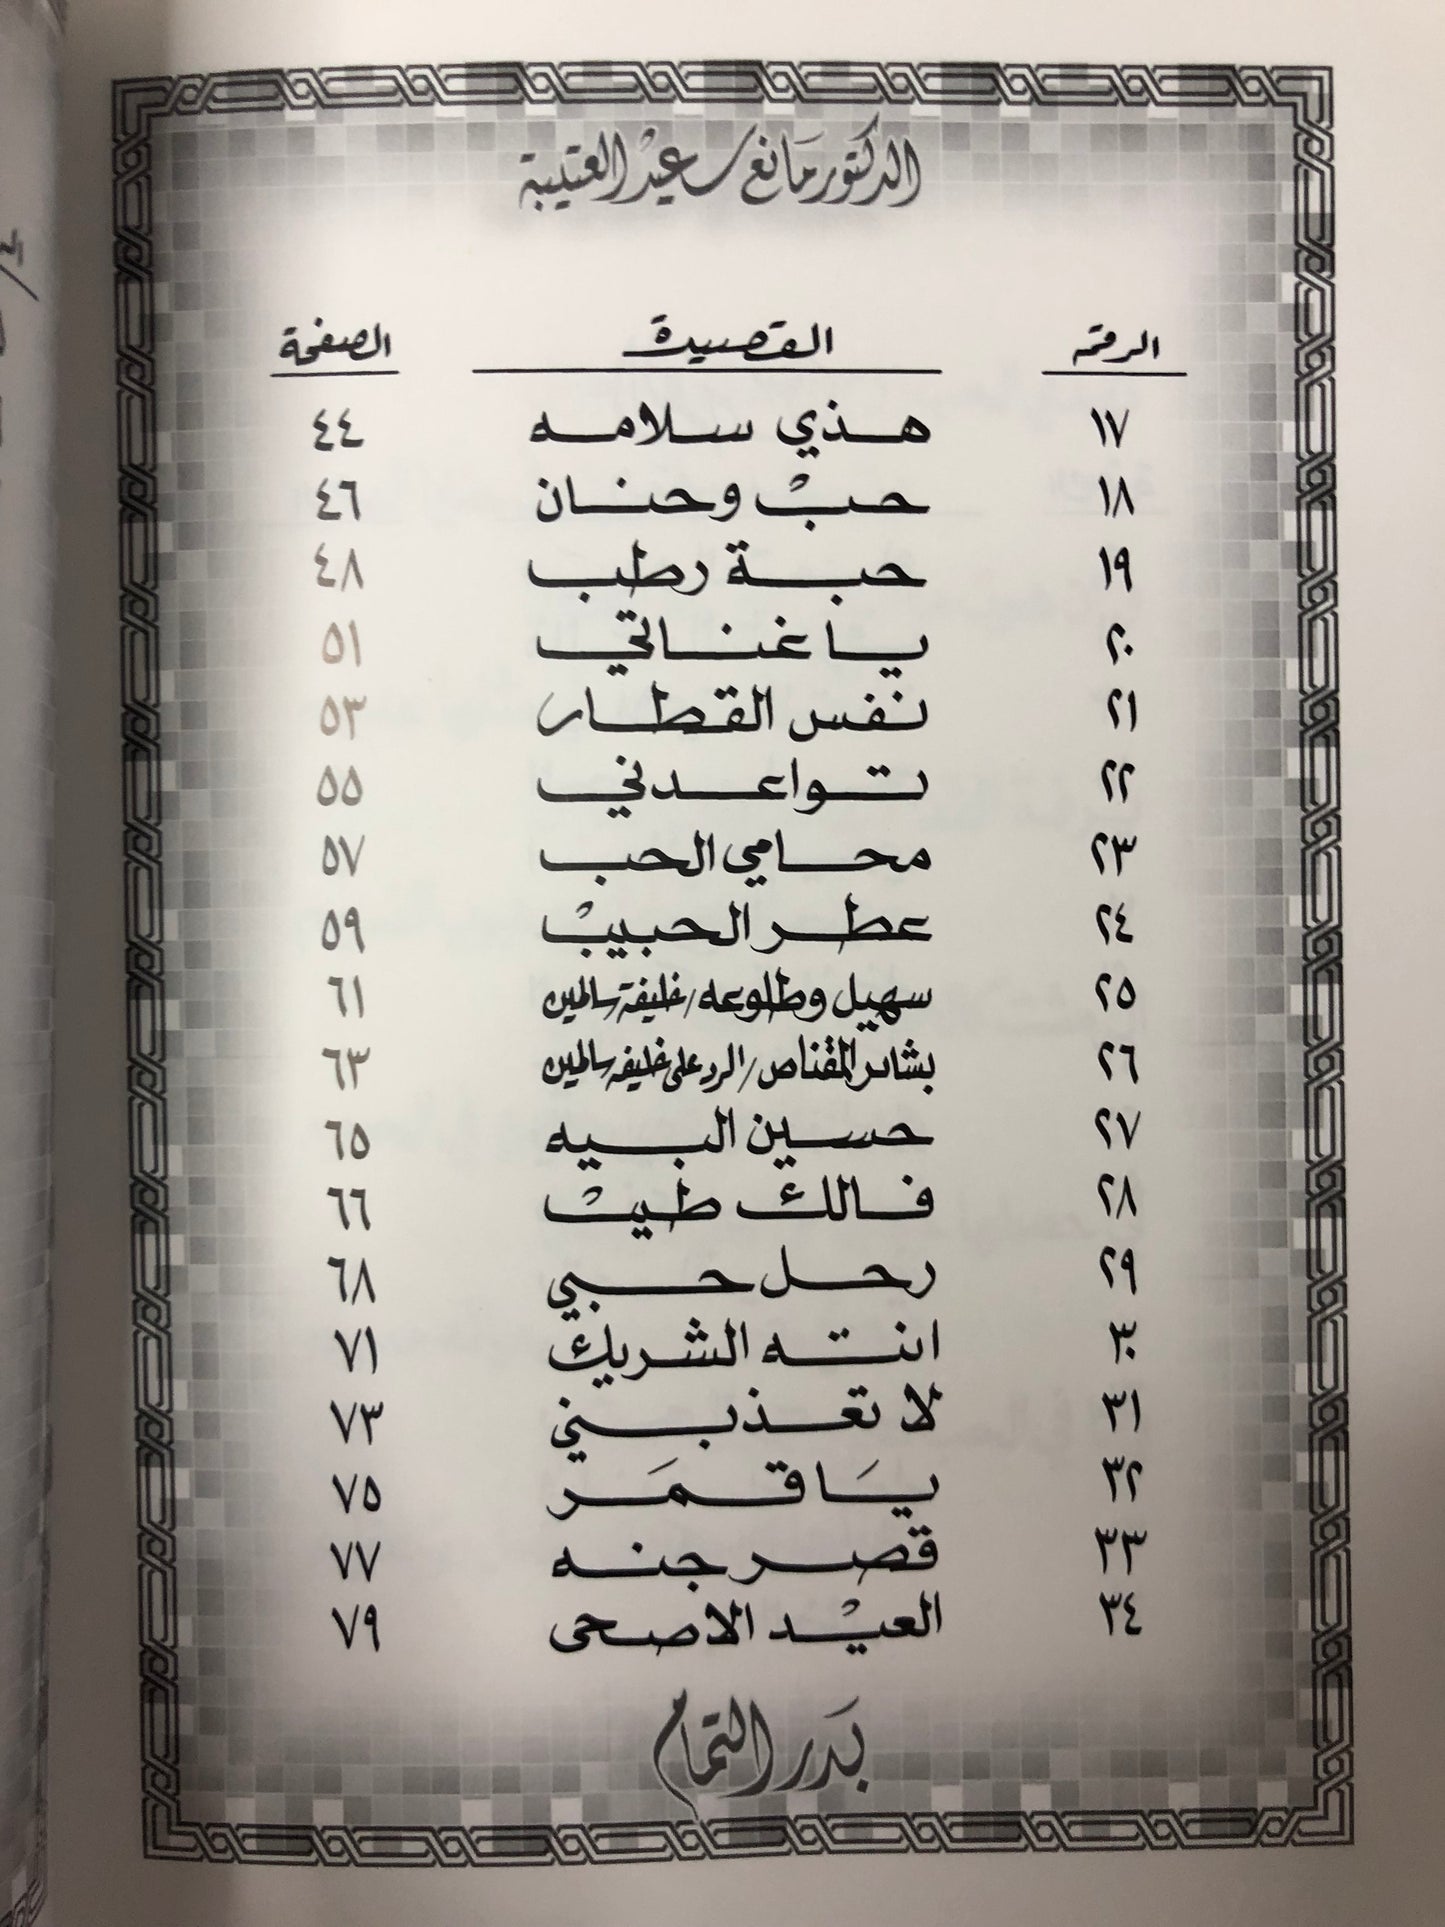 الدكتور مانع سعيد العتيبة
الرقم القصيدة الصفحة
١٧ هذي سلامه ٤٤
١٨ حبْ وحنان ٤٦
١٩ حبة رطب ٤٨
٢٠ يا غناتي ٥١
٢١ نفس القطار ٥٣
٢٢ تواعدني ٥٥
٢٣ محامي الحب ٥٧
٢٤ عطر الحبيبْ ٥٩
٢٥ سهيل وطلوعه/خليفة سالمين ٦١
٢٦ بشاير المقناص/الرد على خليفه سالمين ٦٣
٢٧ حسين البيه ٦٥
٢٨ فالك طيبْ ٦٦
٢٩ رحل حبي ٦٨
٣٠ انته الشريك ٧١
٣١ لا تعذبني ٧٣
٣٢ يَا قمَر ٧٥
٣٣ قصر جنه ٧٧
٣٤ العيْد الاضحى ٧٩
بَدر التمام